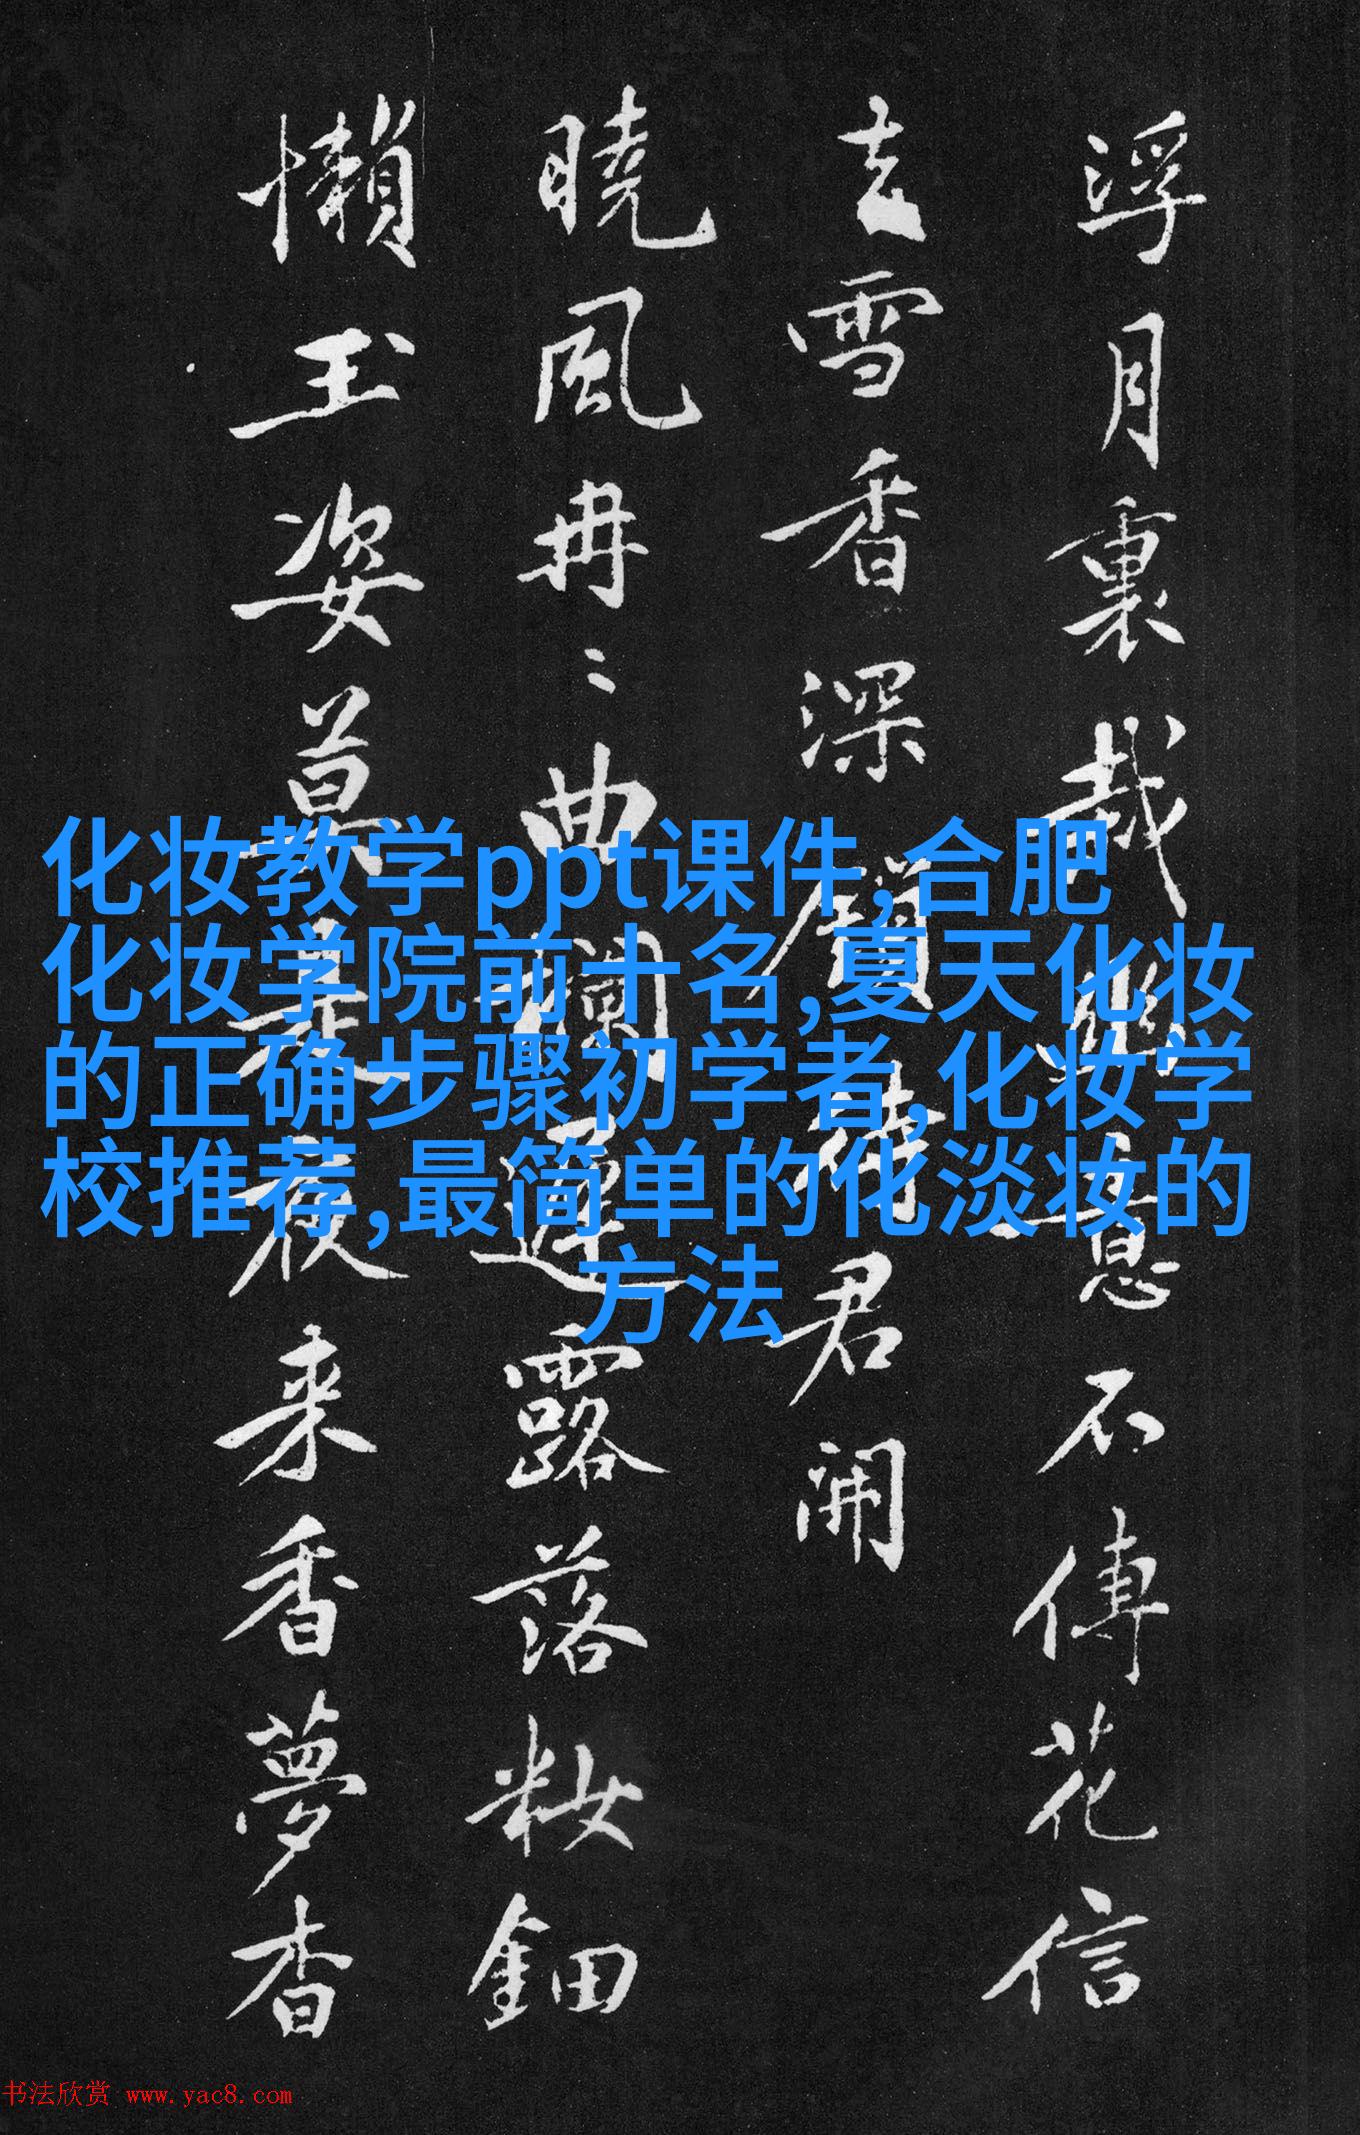 化妆教学ppt课件,合肥
化妆学院前十名,夏天化妆
的正确步骤初学者,化妆学
校推荐,最简单的化淡妆的
方法
浮月裏哉幽意不傳花信
雪香深待君闹
曉風冉〻曲欄露落粧鈿
懶玉姿莫是夜来香夢杳
书法欣赏 www.yac8.com